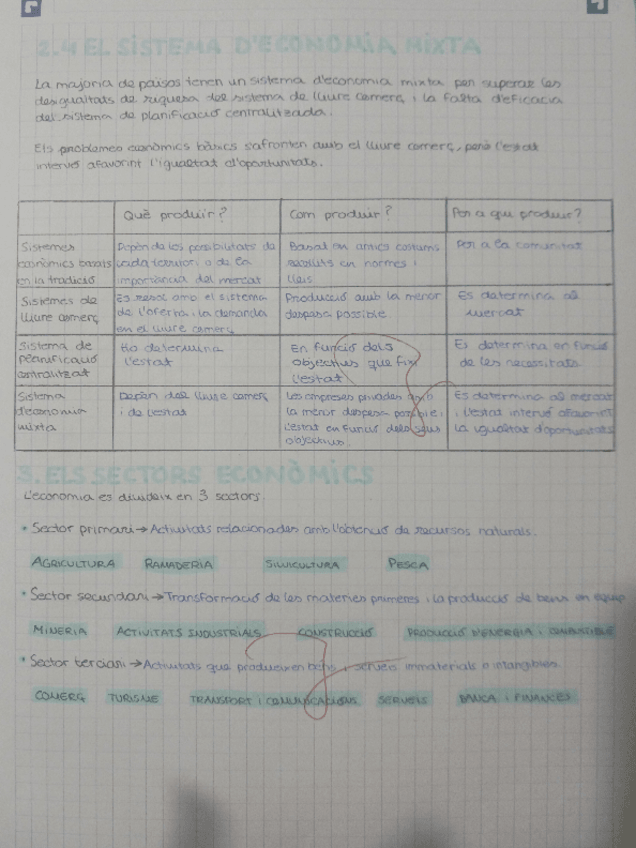 2.4 EL SISTEMA D'ECONOMIA MIXTA
La majoria de països tenen un sistema d'economia mixta per superar les
desigualtats de riquesa del sistema de lliure comerç i la falta d'eficàcia
del sistema de planificació centralitzada.
Els problemes econòmics bàsics s'afronten amb el lliure comerç, però l'estat
intervé afavorint l'igualtat d'oportunitats.
Què produir? Com produir? Per a qui produir?
Sistemes
econòmics basats
en la tradició
Depèn de les possibilitats de
cada territori o de la
importància del mercat
Basat en antics costums
recollits en normes i
lleis
Per a la comunitat
Sistemes de
lliure comerç
Es resol amb el sistema
de l'oferta i la demanda
en el lliure comerç
Producció amb la menor
despesa possible
Es determina al
mercat
Sistema de
planificació
centralitzat
Ho determina
l'estat
En funció dels
objectius que fixi
l'estat
Es determina en funció
de les necessitats
Sistema
d'economia
mixta
Depèn del lliure comerç
i de l'estat
Les empreses privades amb
la menor despesa possible i
l'estat en funció dels seus
objectius.
Es determina al mercat
i l'estat intervé afavorint
la igualtat d'oportunitats
3. ELS SECTORS ECONÒMICS
L'economia es divideix en 3 sectors.
• Sector primari → Activitats relacionades amb l'obtenció de recursos naturals.
AGRICULTURA RAMADERIA SILVICULTURA PESCA
• Sector secundari → Transformació de les matèries primeres i la producció de bens en equip
MINERIA ACTIVITATS INDUSTRIALS CONSTRUCCIÓ PRODUCCIÓ D'ENERGIA I COMBUSTIBLE
• Sector terciari → Activitats que produeixen béns i serveis immaterials o intangibles.
COMERÇ TURISME TRANSPORT I COMUNICACIONS SERVEIS BANCA I FINANCES